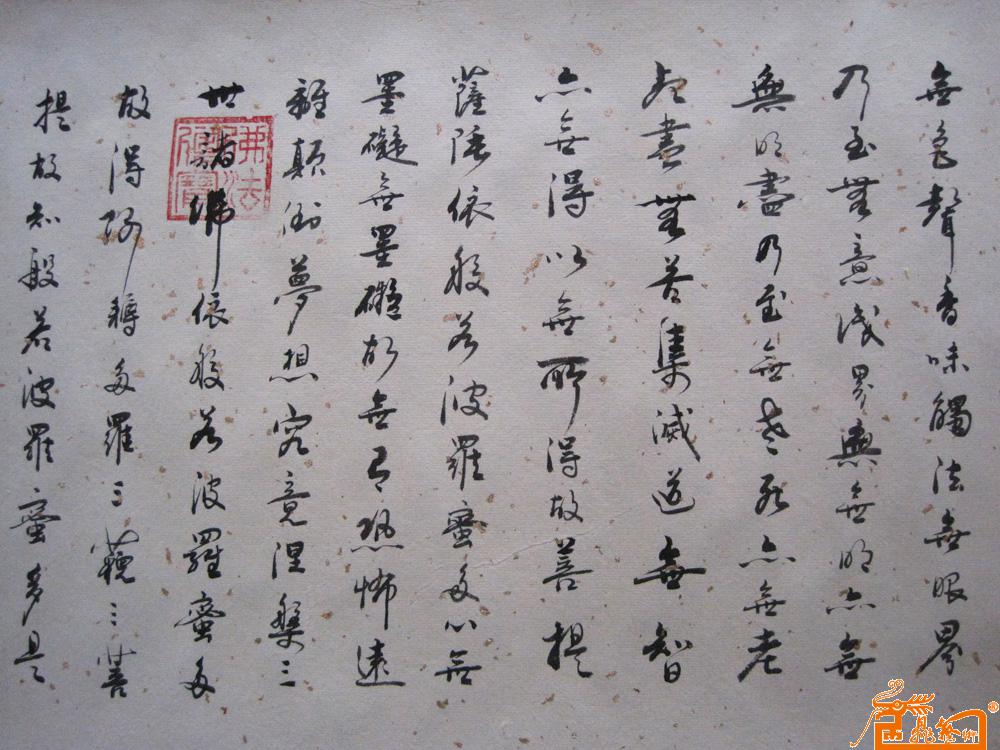 無色聲香味觸法無眼界
乃至無意識界無無明亦無
無明盡乃至無老死亦無老
死盡無苦集滅道無智
亦無得以無所得故菩提
薩埵依般若波羅蜜多心無
罣礙無罣礙故無有恐怖遠
離顛倒夢想究竟涅槃三
世諸佛依般若波羅蜜多
故得阿耨多羅三藐三菩
提故知般若波羅蜜多是
佛法僧寶